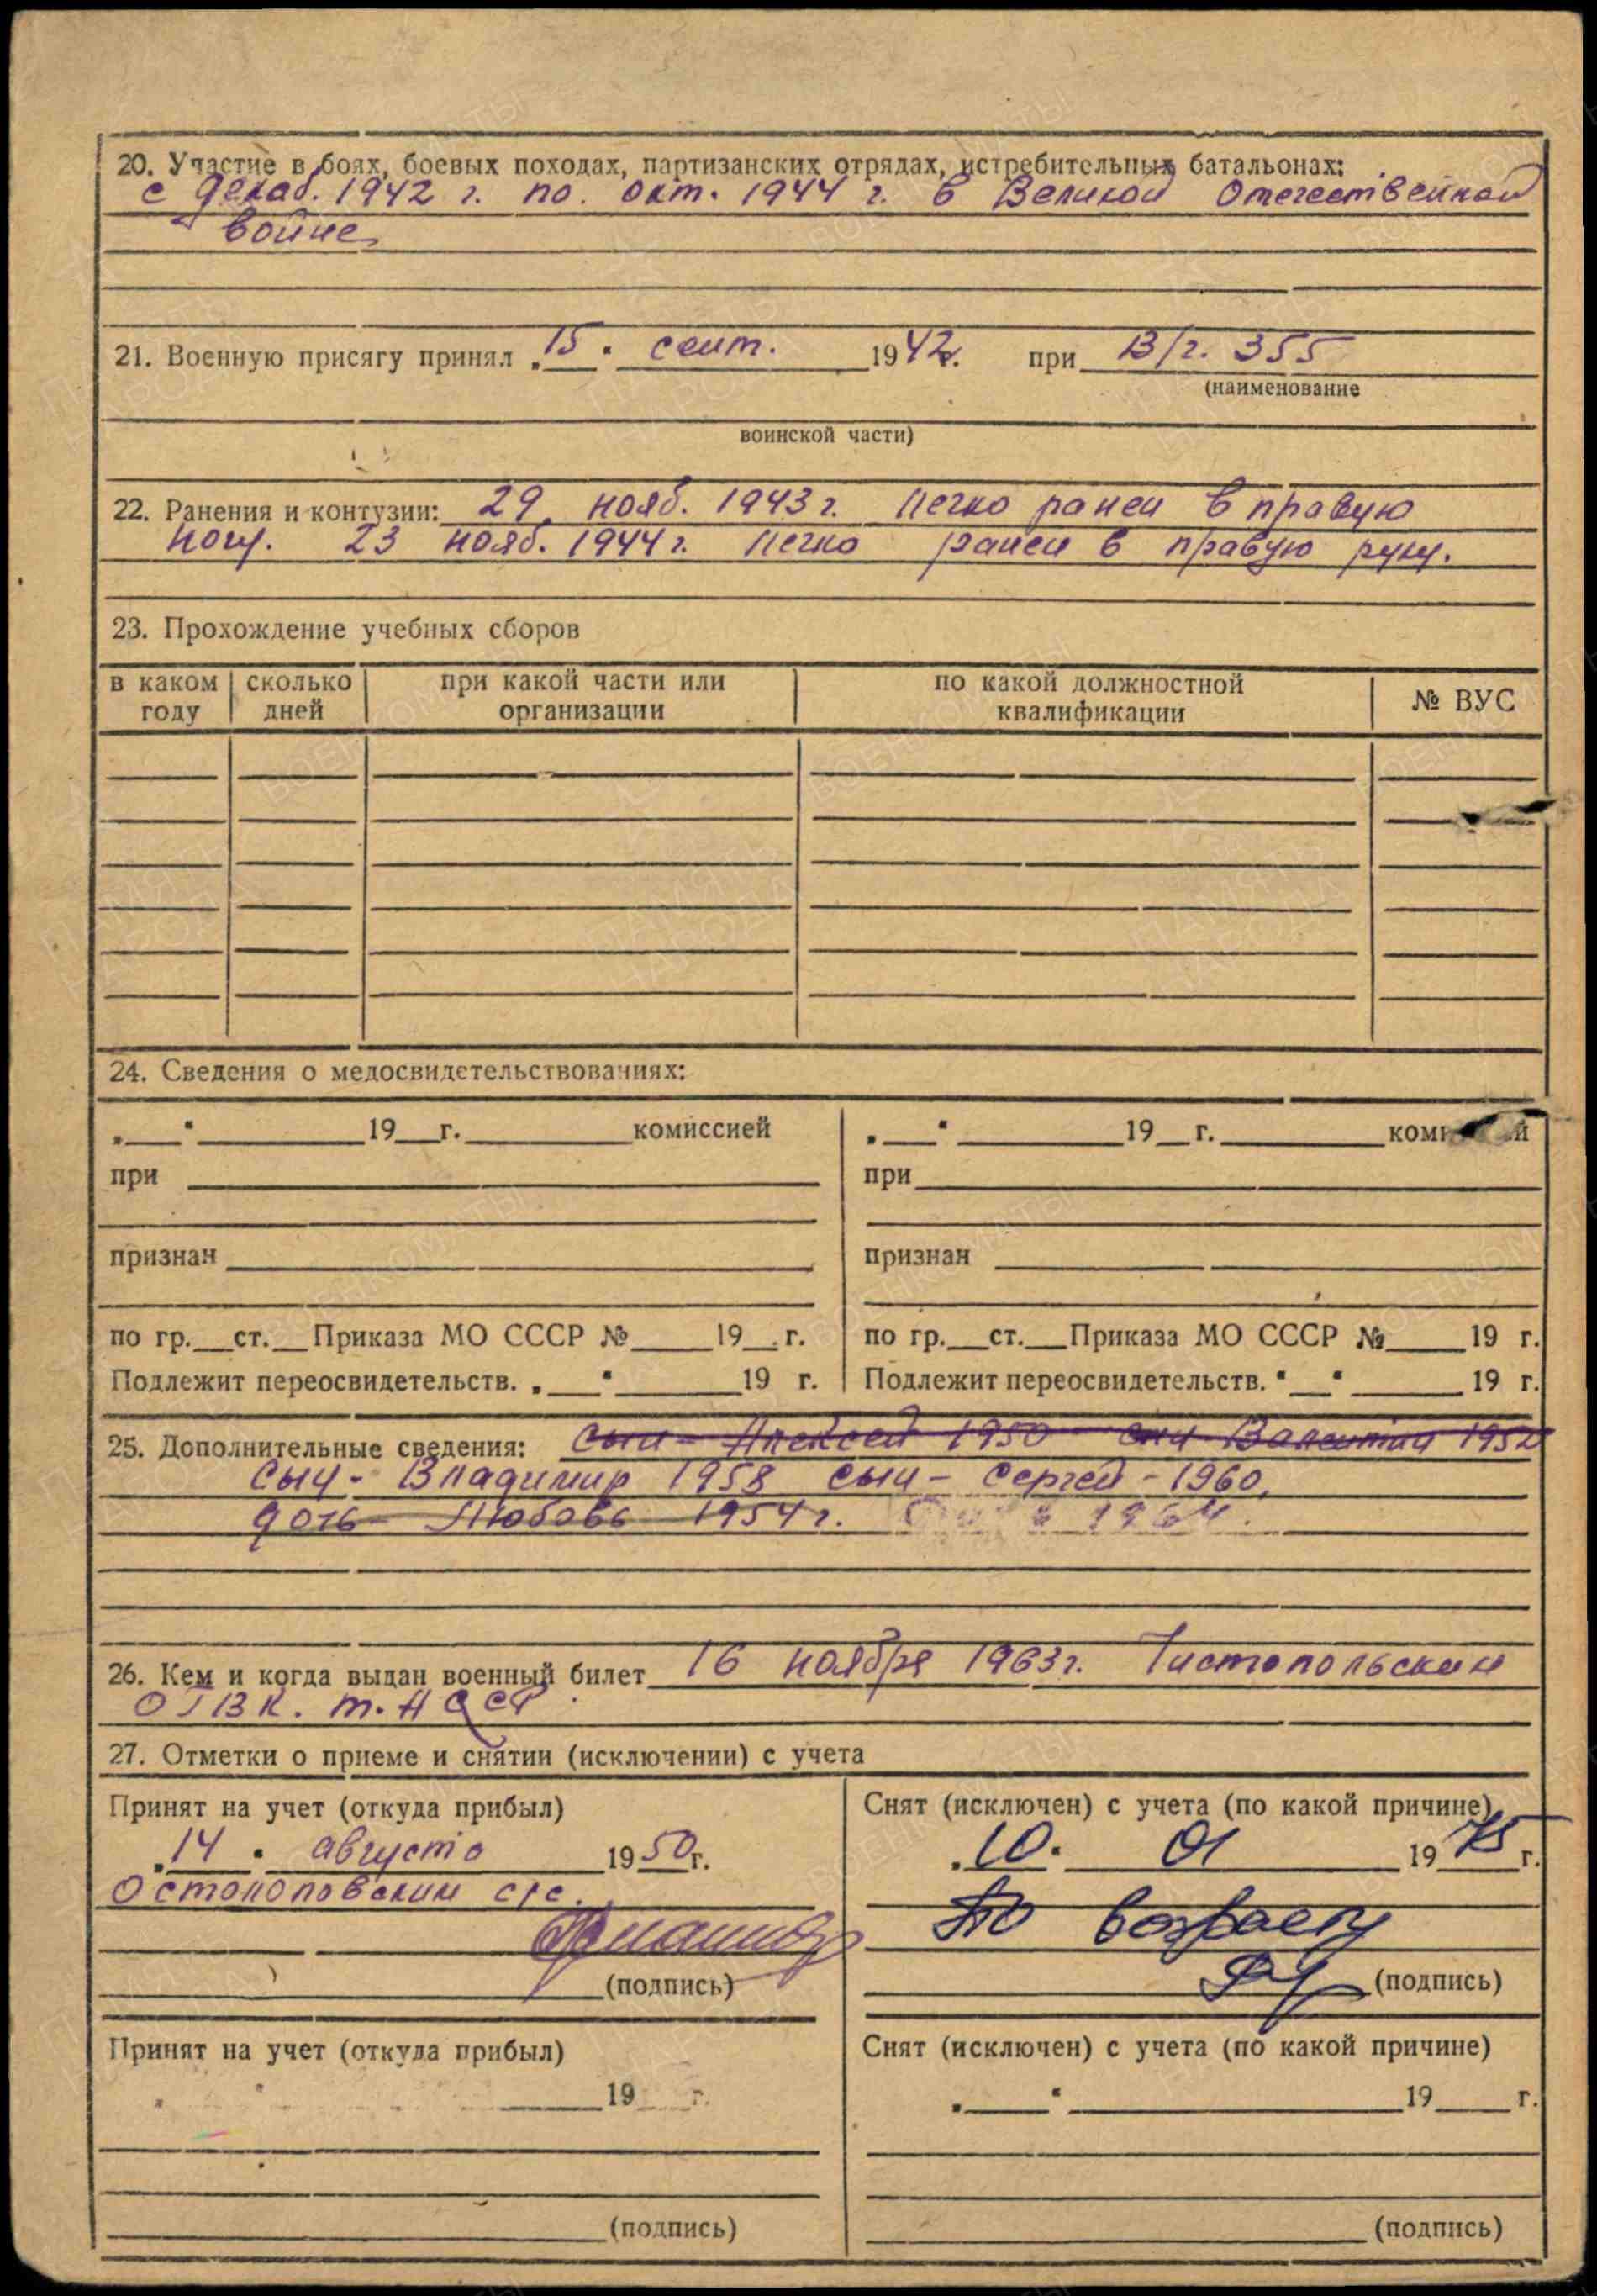 20. Участие в боях, боевых походах, партизанских отрядах, истребительных батальонах:
с декаб. 1942 г. по. окт. 1944 г. в Великой Отечественной
войне
21. Военную присягу принял „15" сент. 1942г. при В/г. 355
(наименование
воинской части)
22. Ранения и контузии: 29 нояб. 1943 г. Легко ранен в правую
ногу. 23 нояб. 1944 г. Легко ранен в правую руку.
23. Прохождение учебных сборов
в каком году сколько дней при какой части или организации по какой должностной квалификации № ВУС
24. Сведения о медосвидетельствованиях:
„___"________19__г.________комиссией „___"________19__г.________комиссией
при при
признан признан
по гр.__ст.__Приказа МО СССР №____19__г. по гр.__ст.__Приказа МО СССР №____19 г.
Подлежит переосвидетельств. „___"______19 г. Подлежит переосвидетельств. "__"______19 г.
25. Дополнительные сведения: сын - Алексей 1950 сын - Валентин 1952
сын - Владимир 1958 сын - Сергей - 1960,
дочь Любовь 1954 г. 1964.
26. Кем и когда выдан военный билет 16 ноября 1963г. Чистопольским
ОГВК. т. АССР
27. Отметки о приеме и снятии (исключении) с учета
Принят на учет (откуда прибыл) Снят (исключен) с учета (по какой причине)
„14" августа 1950г. „10" 01 1975 г.
Остолоповским с/с. По возрасту
(подпись) (подпись)
Принят на учет (откуда прибыл) Снят (исключен) с учета (по какой причине)
19 г. „___"________19__г.
(подпись) (подпись)